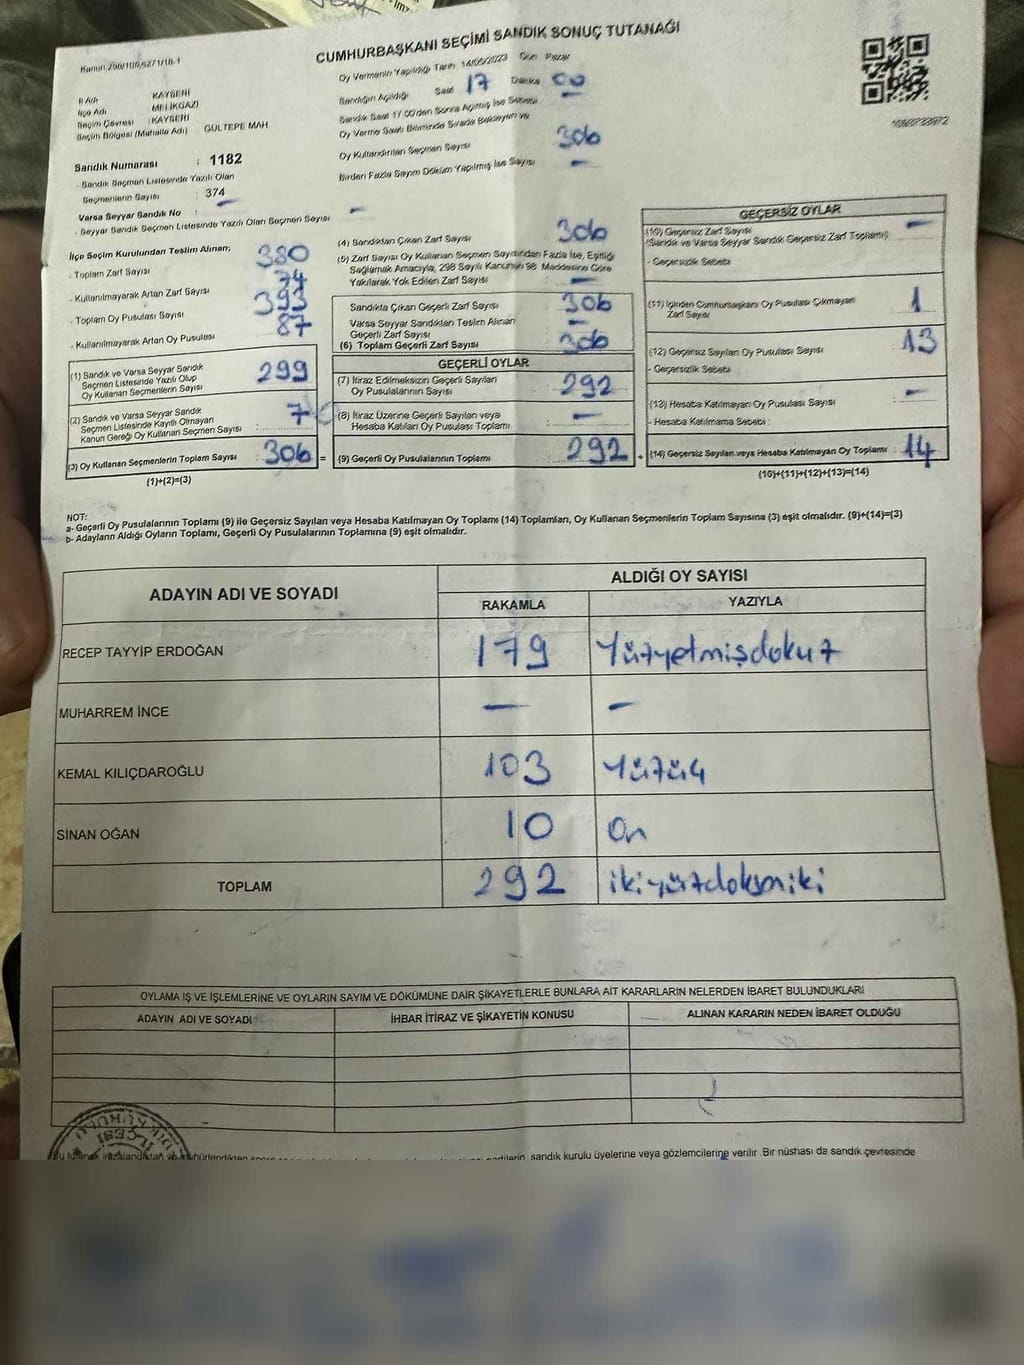 CUMHURBAŞKANI SEÇİMİ SANDIK SONUÇ TUTANAĞI
İl Adı KAYSERİ
İlçe Adı MELİKGAZİ
Seçim Çevresi : KAYSERİ
Seçim Bölgesi (Mahalle Adı) GÜLTEPE MAH
Sandık Numarası : 1182
- Sandık Seçmen Listesinde Yazılı Olan
Seçmenlerin Sayısı : 374
Varsa Seyyar Sandık No : -
- Seyyar Sandık Seçmen Listesinde Yazılı Olan Seçmen Sayısı -
Oy Vermenin Yapıldığı Tarih 14/05/2023 Gün Pazar
Sandığın Açıldığı Saat 17 Dakika 00
Sandık Saat 17.00'den Sonra Açılmış İse Sebebi -
Oy Verme Saati Bitiminde Sırada Bekleyen ve
Oy Kullandırılan Seçmen Sayısı 306
Birden Fazla Sayım Döküm Yapılmış İse Sayısı -
İlçe Seçim Kurulundan Teslim Alınan;
- Toplam Zarf Sayısı 380
- Kullanılmayarak Artan Zarf Sayısı 74
- Toplam Oy Pusulası Sayısı 393
- Kullanılmayarak Artan Oy Pusulası 87
(1) Sandık ve Varsa Seyyar Sandık
Seçmen Listesinde Yazılı Olup
Oy Kullanan Seçmenlerin Sayısı : 299
(2) Sandık ve Varsa Seyyar Sandık
Seçmen Listesinde Kayıtlı Olmayan
Kanun Gereği Oy Kullanan Seçmen Sayısı : 7
(3) Oy Kullanan Seçmenlerin Toplam Sayısı : 306 =
(1)+(2)=(3)
(4) Sandıktan Çıkan Zarf Sayısı 306
(5) Zarf Sayısı Oy Kullanan Seçmen Sayısından Fazla İse, Eşitliği
Sağlamak Amacıyla, 298 Sayılı Kanunun 98 Maddesine Göre
Yakılarak Yok Edilen Zarf Sayısı : -
Sandıkta Çıkan Geçerli Zarf Sayısı : 306
Varsa Seyyar Sandıktan Teslim Alınan
Geçerli Zarf Sayısı : -
(6) Toplam Geçerli Zarf Sayısı : 306
GEÇERLİ OYLAR
(7) İtiraz Edilmeksizin Geçerli Sayılan
Oy Pusulasının Sayısı : 292
(8) İtiraz Üzerine Geçerli Sayılan veya
Hesaba Katılan Oy Pusulası Toplamı : -
(9) Geçerli Oy Pusulalarının Toplamı : 292 +
GEÇERSİZ OYLAR
(10) Geçersiz Zarf Sayısı -
(Sandık ve Varsa Seyyar Sandık Geçersiz Zarf Toplamı)
- Geçersizlik Sebebi
(11) İçinden Cumhurbaşkanı Oy Pusulası Çıkmayan
Zarf Sayısı 1
(12) Geçersiz Sayılan Oy Pusulası Sayısı 13
- Geçersizlik Sebebi
(13) Hesaba Katılmayan Oy Pusulası Sayısı -
- Hesaba Katılmama Sebebi :
(14) Geçersiz Sayılan veya Hesaba Katılmayan Oy Toplamı : 14
(10)+(11)+(12)+(13)=(14)
NOT:
a- Geçerli Oy Pusulalarının Toplamı (9) ile Geçersiz Sayılan veya Hesaba Katılmayan Oy Toplamı (14) Toplamları, Oy Kullanan Seçmenlerin Toplam Sayısına (3) eşit olmalıdır. (9)+(14)=(3)
b- Adayların Aldığı Oyların Toplamı, Geçerli Oy Pusulalarının Toplamına (9) eşit olmalıdır.
ADAYIN ADI VE SOYADI
ALDIĞI OY SAYISI
RAKAMLA YAZIYLA
RECEP TAYYİP ERDOĞAN 179 Yüzyetmişdokuz
MUHARREM İNCE - -
KEMAL KILIÇDAROĞLU 103 Yüzüç
SİNAN OĞAN 10 On
TOPLAM 292 ikiyüzdoksaniki
OYLAMA İŞ VE İŞLEMLERİNE VE OYLARIN SAYIM VE DÖKÜMÜNE DAİR ŞİKAYETLERLE BUNLARA AİT KARARLARIN NELERDEN İBARET BULUNDUKLARI
ADAYIN ADI VE SOYADI İHBAR İTİRAZ VE ŞİKAYETİN KONUSU ALINAN KARARIN NEDEN İBARET OLDUĞU
sandık kurulu üyelerine veya gözlemcilerine verilir. Bir nüshası da sandık çevresinde